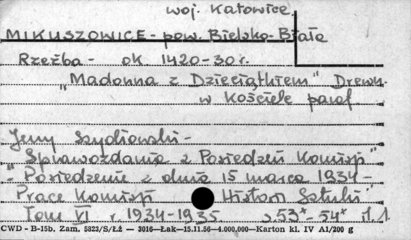 woj. Katowice.
MIKUSZOWICE - pow. Bielsko-Biała
Rzeźba - ok 1420-30 r.
"Madonna z Dzieciątkiem" Drewn.
w kościele paraf
Jerzy Szydłowski -
"Sprawozdania z Posiedzeń Komisji"
"Posiedzenie z dnia 15 marca 1934 -
Prace Komisji Histori Sztuki"
Tom VI r 1934-1935 s 53* - 54*
CWD - B-15b. Zam. 5823/S/ŁŻ — 3016—Łak—15.11.56—4.000.000—Karton kl. IV A1/200 g